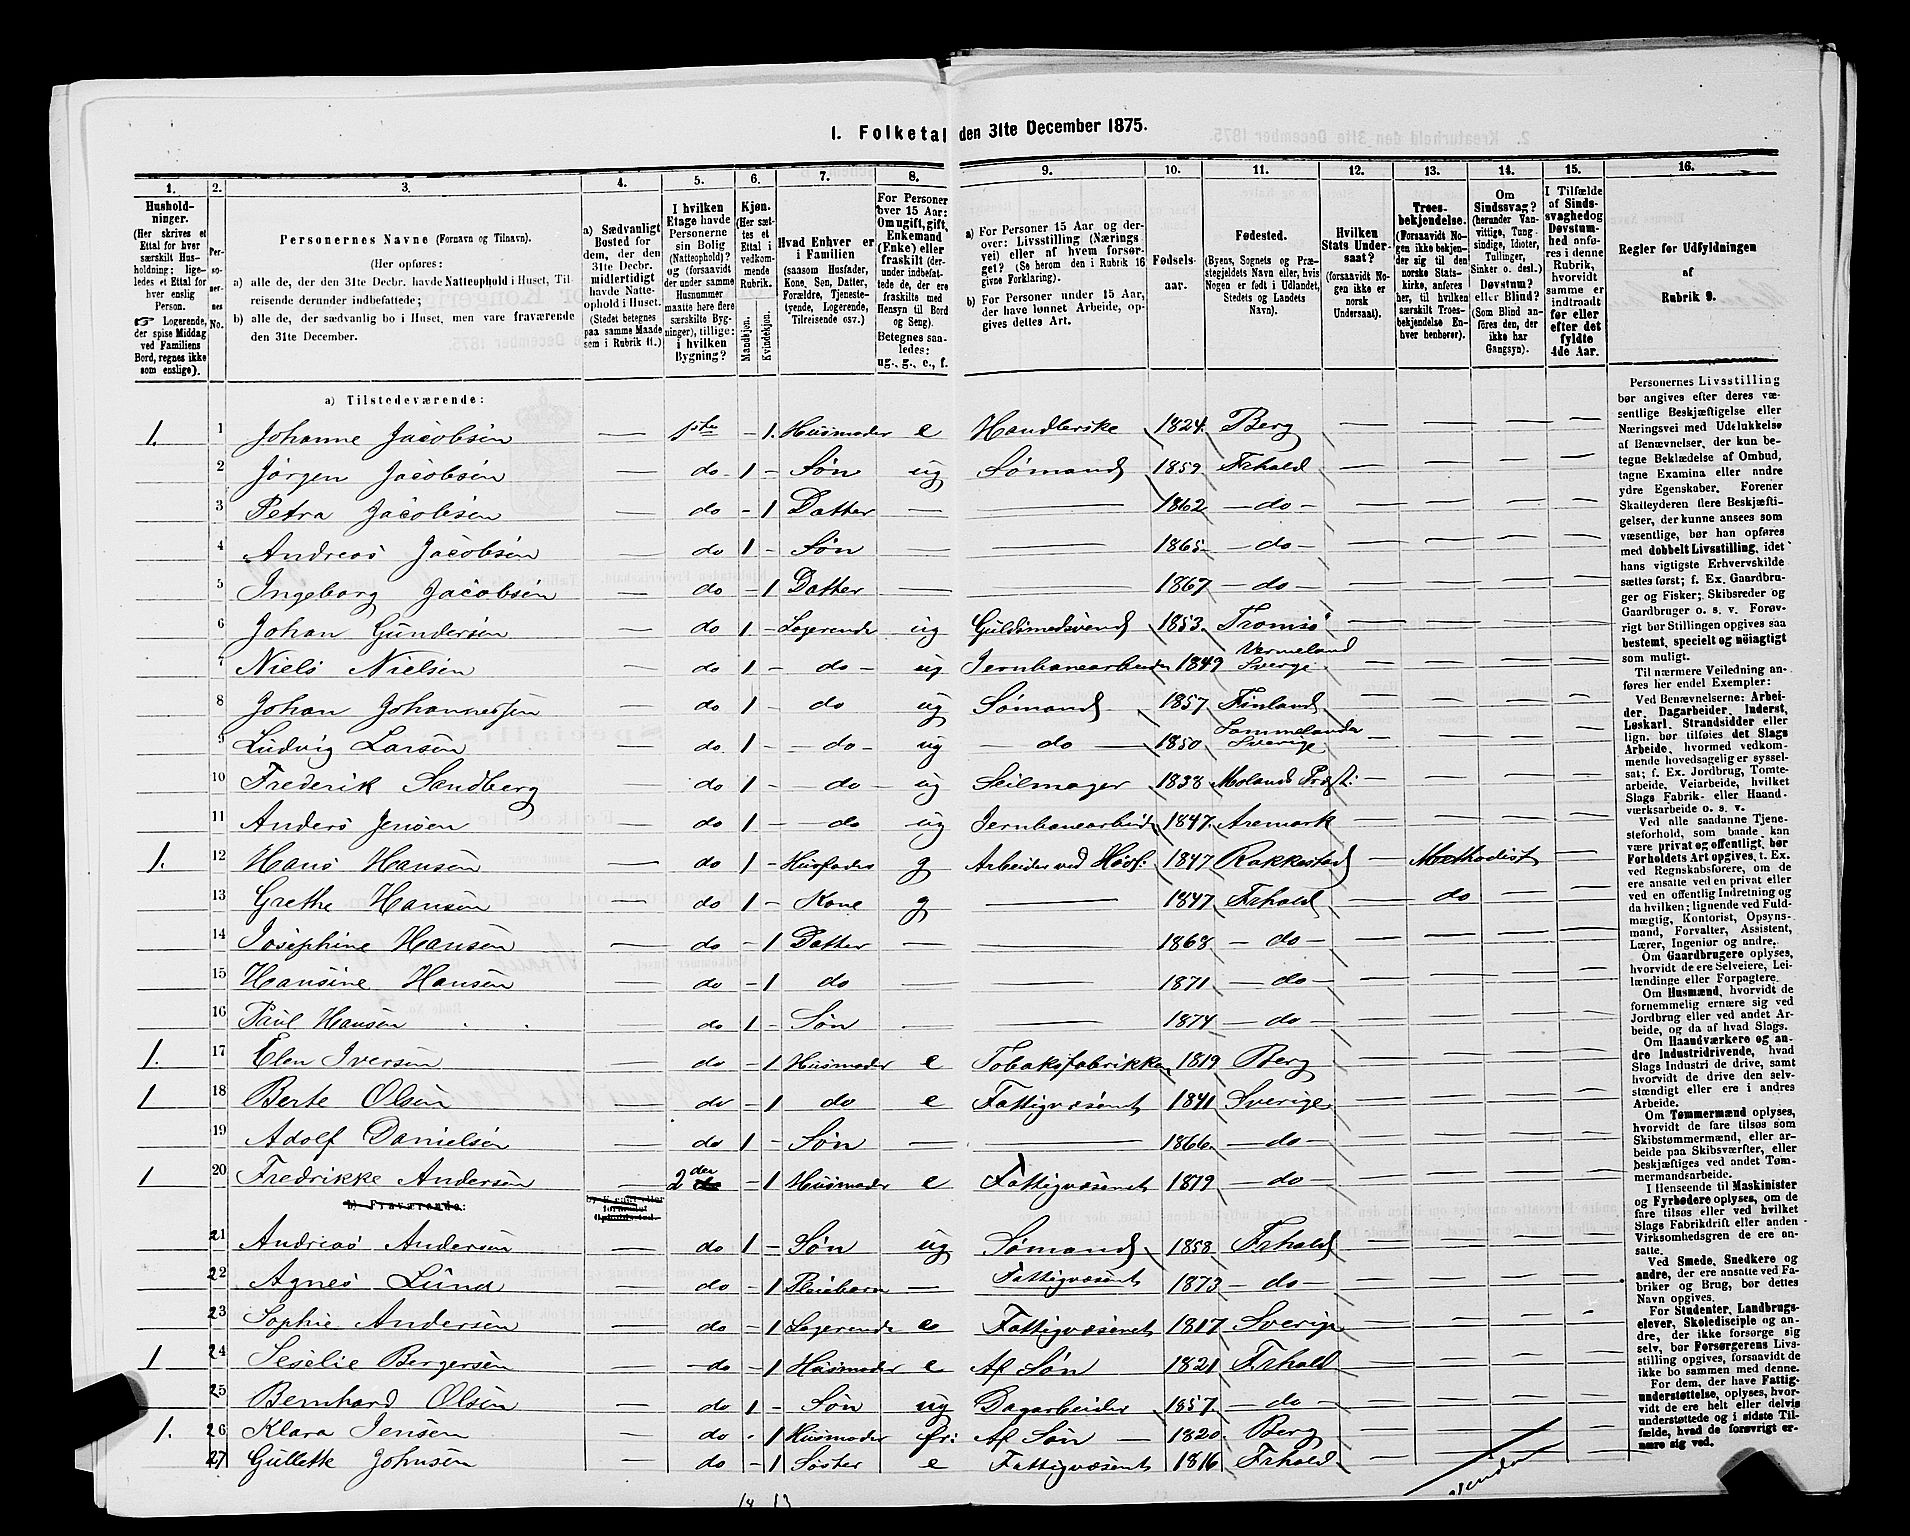 1. Folketal den 31te December 1875.
1. 2. 3. 4. 5. 6. 7. 8. 9. 10. 11. 12. 13. 14. 15. 16.
Husholdninger. (Her skrives et Ettal for hver særskilt Husholdning; ligeledes et Ettal for hver enslig Person.
☞ Logerende, der spise Middag ved Familiens Bord, regnes ikke som enslige).
Personernes No.
Personernes Navne (Fornavn og Tilnavn).
(Her opføres:
a) alle de, der den 31te Decbr. havde Natteophold i Huset, Tilreisende derunder indbefattede;
b) alle de, der sædvanlig bo i Huset, men vare fraværende den 31te December.
a) Sædvanligt Bosted for dem, der den 31te Decbr. midlertidigt havde Natteophold i Huset. (Stedet betegnes paa samme Maade som i Rubrik 11.)
I hvilken Etage havde Personerne sin Bolig (Natteophold)? og (forsaavidt der under samme Husnummer maatte høre flere særskilte Bygninger), tillige: i hvilken Bygning?
Kjøn. (Her sættes et Ettal i vedkommende Rubrik.
Mandkjøn. Kvindekjøn.
Hvad Enhver er i Familien (saasom Husfader, Kone, Søn, Datter, Forældre, Tjenestetyende, Logerende, Tilreisende osv.)
For Personer over 15 Aar: Om ugift, gift, Enkemand (Enke) eller fraskilt (derunder indbefattede de, der ere fraskilte med Hensyn til Bord og Seng). Betegnes saaledes: ug., g., e., f.
a) For Personer 15 Aar og derover: Livsstilling (Næringsvei) eller af hvem forsørget? (Se herom den i Rubrik 16 givne Forklaring).
b) For Personer under 15 Aar, der have lønnet Arbeide, opgives dettes Art.
Fødselsaar.
Fødested. (Byens, Sognets og Præstegjeldets Navn eller, hvis Nogen er født i Udlandet, Stedets og Landets Navn).
Hvilken Stats Undersaat? (forsaavidt Nogen ikke er norsk Undersaat).
Troesbekjendelse. (Forsaavidt Nogen ikke bekjender sig til den norske Statskirke, anføres her, til hvilken særskilt Troesbekjendelse Enhver henhører).
Om Sindssvag? (herunder Vanvittige, Tungsindige, Idioter, Tullinger, Sinker o. desl.) Døvstum? eller Blind? (Som Blind anføres den, der ikke har Gangsyn).
I Tilfælde af Sindssvaghed og Døvstumhed anføres i denne Rubrik, hvorvidt samme er indtraadt før eller efter det fyldte 4de Aar.
Regler for Udfyldningen af Rubrik 9.
a) Tilstedeværende:
1. 1 Johanne Jacobsen — 1ste - 1. Husmoder e Handlerske 1824. Berg — — — —
2 Jørgen Jacobsen — do 1 - Søn ug Sømand 1859. Frhald — — — —
3 Petra Jacobsen — do - 1 Datter — — 1862 — do — — — — —
4 Andreas Jacobsen — do 1 - Søn — — 1865. — do — — — — —
5 Ingeborg Jacobsen — do - 1 Datter — — 1867 — do — — — — —
6 Johan Gundersen — do 1 - Logerende ug Guldsmedsvend 1853. Tromsø — — — —
7 Niels Nielsen — do 1 - — do — ug Jernbanearbeider 1849 Vermeland Sverge — — — —
8 Johan Johannessen — do 1 - do ug Sømand 1857 Finland — — — —
9 Ludvig Larsen — do 1 - — do — ug — do — 1850. Sverige. — — — —
10 Frederik Sandberg — do 1 - — do — ug Seilmager 1838 Molands Præst: — — — —
11 Anders Jensen — do 1 - — do ug Jernbanearbeide 1847. Aremark — — — —
1. 12 Hans Hansen — do 1 - Husfader g Arbeider ved Høvl: 1847 Rakkestad — Methodist — —
13 Grethe Hansen — do 1 - Kone g — 1847 Frhald — do — —
14 Josephine Hansen — do - 1 Datter — — 1868 — do — — — — —
15 Hansine Hansen — do - 1 do — — 1871 — do — — — — —
16 Paul Hansen do 1 - Søn — — 1874 — do — — — — —
1. 17 Elen Iversen — do - 1 Husmoder e Tobaksfabrikken 1819 Berg — — — —
1 18 Berte Olsen — do - 1 do e Fattigvæsenet 1841 Sverige — — — —
19 Adolf Danielsen — do 1 - Søn — — 1866. — do — — — — —
1 20 Fredrikke Andersen — 2den - 1 Husmoder e Fattigvæsenet 1819 — do — — — — —
b) Fraværende:
21 Andreas Andersen — do 1 - Søn ug Sømand 1858. Frhald — — — —
22 Agnes Lund — do - 1 Pleiebarn — Fattigvæsenet 1873 — do — — — — —
23 Sophie Andersen — do - 1 Logerende e Fattigvæsenet 1817 Sverige — — — -
1 24 Seselie Bergersen — do - 1 Husmoder e Af Søn 1821 Frhald — — — —
25 Bernhard Olsen — do 1 - Søn ug Dagarbeider 1857 — do — — — — —
1. 26 Klara Jensen — do - 1 Husmoder Af Søn — 1820. Berg — — — —
27 Gullette Johnsen — do - 1 Søster e Fattigvæsenet 1816 Frhald — — — —
Personernes Livsstilling bør angives efter deres væsentlige Beskjæftigelse eller Næringsvei med Udelukkelse af Benævnelser, der kun betegne Beklædelse af Ombud, tagne Examina eller andre ydre Egenskaber. Forener Skatteyderen flere Beskjæftigelser, der kunne ansees som væsentlige, bør han opføres med dobbelt Livsstilling, idet hans vigtigste Erhvervskilde sættes først; f. Ex. Gaardbruger og Fisker; Skibsreder og Gaardbruger o. s. v. Forøvrigt bør Stillingen opgives saa bestemt, specielt og nøiagtigt som muligt.
Til nærmere Veiledning anføres her endel Exempler:
Ved Benævnelserne: Arbeider, Dagarbeider, Inderst, Løskarl, Strandsidder eller lign. bør tilføies det Slags Arbeide, hvormed vedkommende hovedsagelig er sysselsat; f. Ex. Jordbrug, Tomtearbeide, Veiarbeide, hvilket Slags Fabrik- eller Haandværksarbeide o. s. v.
Ved alle saadanne Tjenesteforhold, som baade kan være privat og offentligt, bør Forholdets Art opgives, t. Ex. ved Regnskabsførere, om de ere ansatte ved en privat eller ved en offentlig Indretning og da hvilken; lignende ved Fuldmægtig, Kontorist, Opsynsmand, Forvalter, Assistent, Lærer, Ingeniør og andre.
Om Gaardbrugere oplyses, hvorvidt de ere Selveiere, Leilændinge eller Forpagtere.
Om Husmænd, hvorvidt de fornemmelig ernære sig ved Jordbrug eller ved andet Arbeide, og da af hvad Slags.
Om Haandværkere og andre Industridrivende, hvad Slags Industri de drive, samt hvorvidt de drive den selvstændigt eller ere i andres Arbeide.
Om Tømmermænd oplyses, hvorvidt de fare tilsøs som Skibstømmermænd, eller arbeide paa Skibsværfter, eller beskjæftiges ved andet Tømmermandsarbeide.
I Henseende til Maskinister og Fyrbødere oplyses, om de fare tilsøs eller ved hvilket Slags Fabrikdrift eller anden Virksomhedsgren de ere ansatte.
Ved Smede, Snedkere og andre, der ere ansatte ved Fabriker og Brug, bør dettes Navn opgives.
For Studenter, Landbrugselever, Skoledisciple og andre, der ikke forsørge sig selv, bør Forsørgerens Livsstilling opgives, forsaavidt de ikke bo sammen med denne.
For dem, der have Fattigunderstøttelse, oplyses, hvorvidt de ere helt eller delvis understøttede og i sidste Tilfælde, hvad de forøvrigt ernære sig ved.